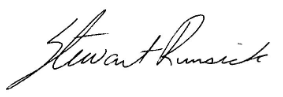 Stewart Runsick